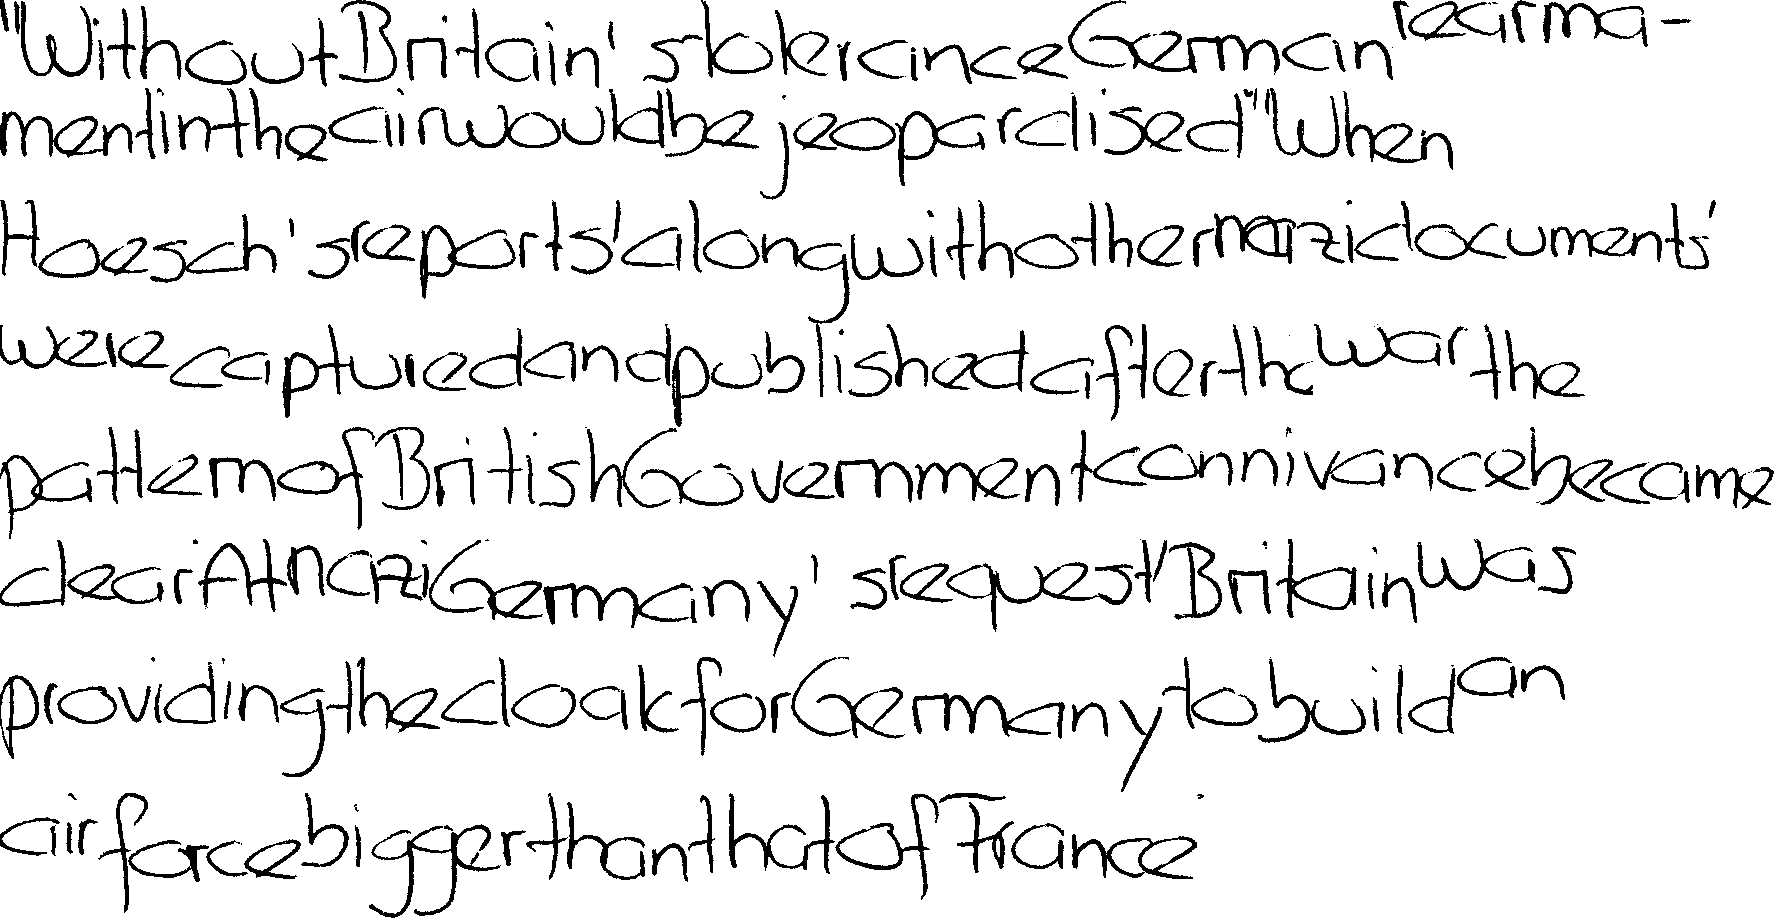 "Without Britain's tolerance German rearma-
ment in the air would be jeopardised" When
Hoesch's reports' along with other nazi documents'
were captured and published after the war the
pattern of British Government connivance became
clear At nazi Germany's request' Britain was
providing the cloak for Germany to build an
air force bigger than that of France